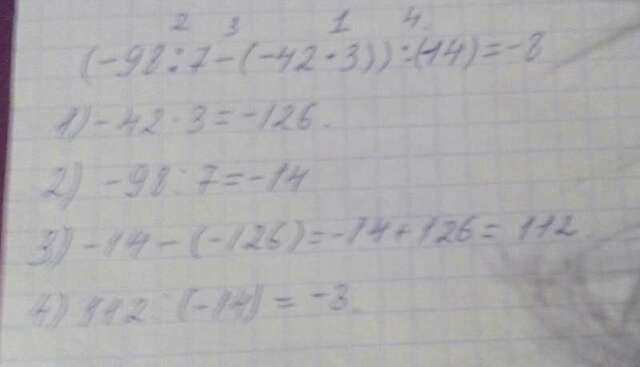 2 3 1 4
(-98:7-(-42·3)):(-14)=-8
1) -42·3=-126.
2) -98:7=-14
3) -14-(-126)=-14+126=112.
4) 112:(-14)=-3.